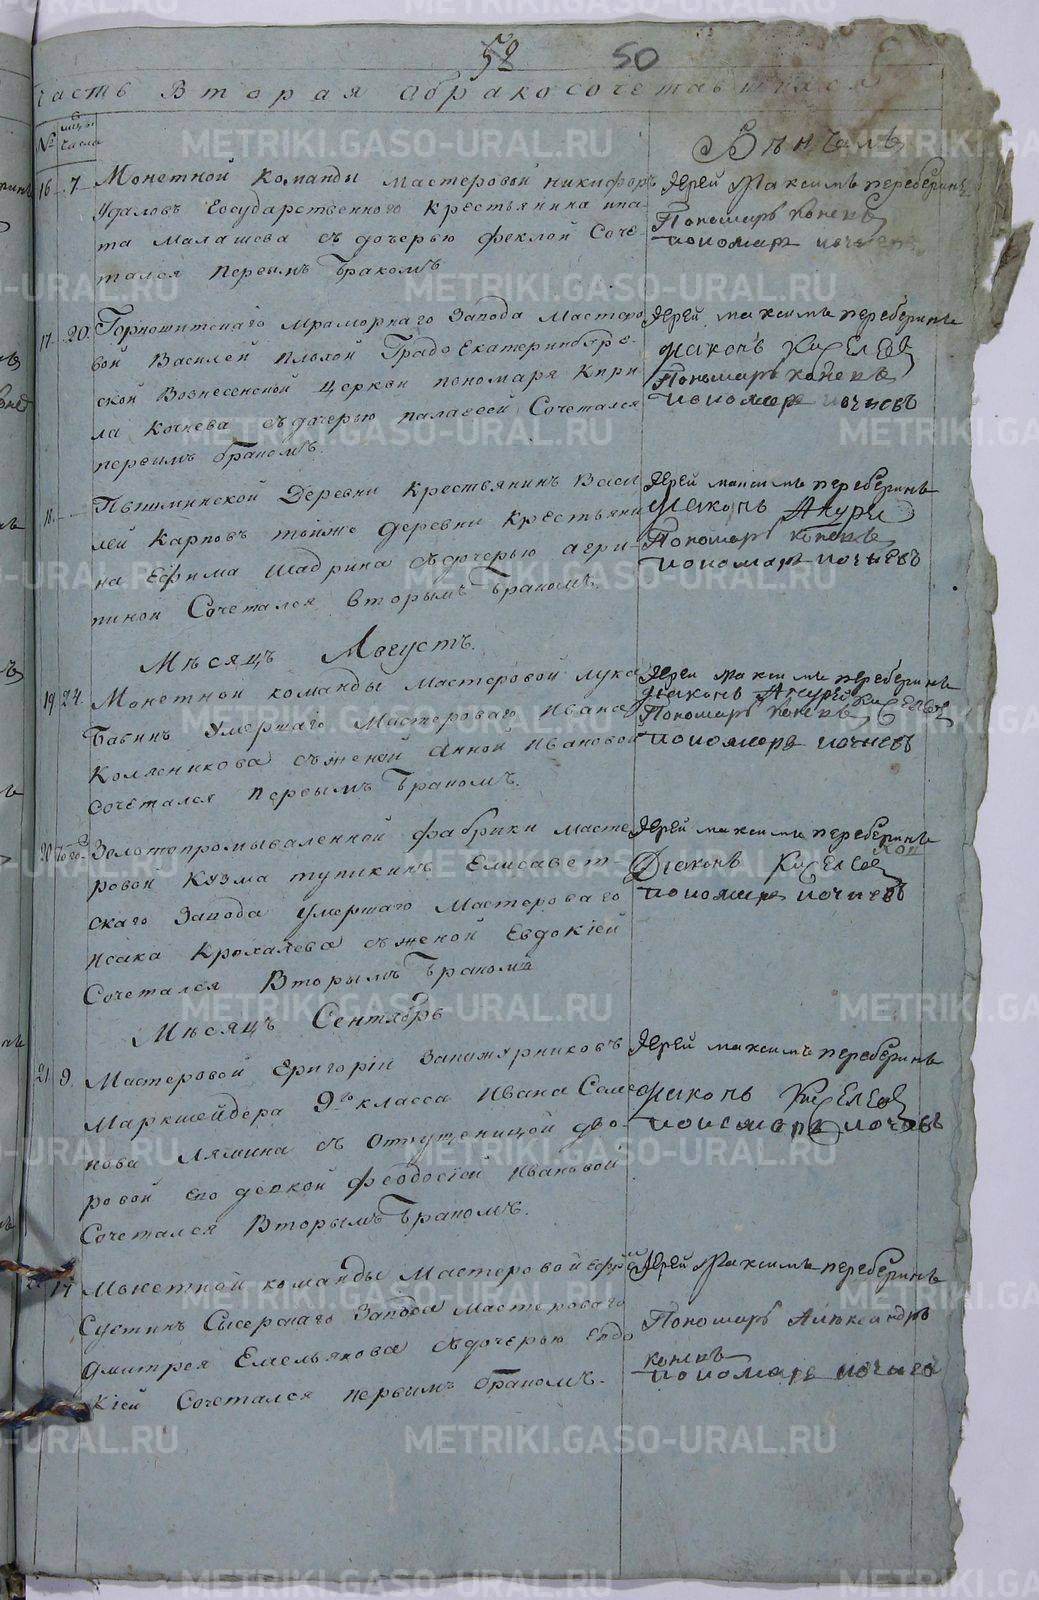 52 50
Часть Вторая о бракосочетавшихся
№ мцы числа
Венчалъ
16 7 Монетной команды мастеровой никифоръ
Удаловъ Государственного крестьянина ипа
та Малашева съ дочерью феклой Соче
тался первымъ бракомъ
Иерей Максимъ переберинъ
Пономарь коневъ
пономарь кочневъ
17. 20. Горнощитскаго мраморнаго Завода мастеро
вой Василей плохой Градо Екатеринбург
ской Вознесенской церкви пономаря Кири
ла кочнева съ дочерью палагеей Сочетался
первымъ бракомъ.
Иерей максимъ переберинъ
диаконъ Киселевъ
Пономарь коневъ
пономарь кочневъ
18. Пышминской Деревни крестьянинъ Васи
лей Карповъ тойже деревни крестьяни
на Ефима Шадрина съ дочерью агри
пиной Сочетался вторымъ бракомъ.
Иерей максимъ переберинъ
диаконъ
Пономарь коневъ
пономарь кочневъ
Месяцъ Августъ.
19 24. Монетной команды мастеровой лука
Бабинъ умершаго мастероваго Ивана
съ женой Анной Ивановой
сочетался первымъ бракомъ.
Иерей Максимъ переберинъ
диаконъ Киселевъ
Пономарь коневъ
пономарь кочневъ
20 того Золотопромываленной фабрики масте
ровой кузма тупикинъ Елисавет
скаго Завода умершаго мастероваго
Исака Крохалева съ женой Евдокией
Сочетался Вторымъ бракомъ
Иерей максимъ переберинъ
Диаконъ Киселевъ
пономарь кочневъ
Месяцъ Сентябрь
21 9. Мастеровой Григорій
Маркшейдера 9го класса Ивана Семе
нова Лямина съ отпущеницой дво
ровой его девкой феодосией Ивановой
Сочетался Вторымъ бракомъ.
Иерей максимъ переберинъ
диаконъ Киселевъ
пономарь кочневъ
17 Монетной команды Мастеровой
Сустинъ Сысерскаго Завода мастероваго
Дмитрея Емельянова съ дочерью Евдо
кией Сочетался первымъ бракомъ.
Иерей Максимъ переберинъ
Пономарь Александръ
коневъ
пономарь
METRIKI.GASO-URAL.RU